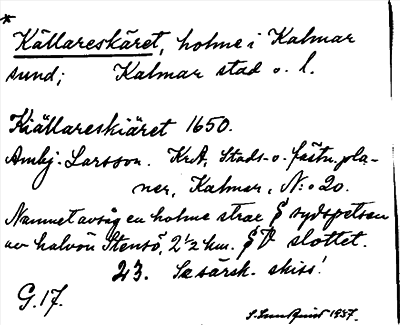 *
Källareskäret, holme i Kalmar
sund; Kalmar stad o. l.
Kiällareskiäret 1650.
Ambj. Larsson. KrA, Stads- o. fästn. pla-
ner, Kalmar, N:o 20.
Namnet avsåg en holme strax S sydspetsen
av halvön Stensö, 2 1/2 km. SV slottet.
23. Se särsk. skiss!
G. 17.
1937.